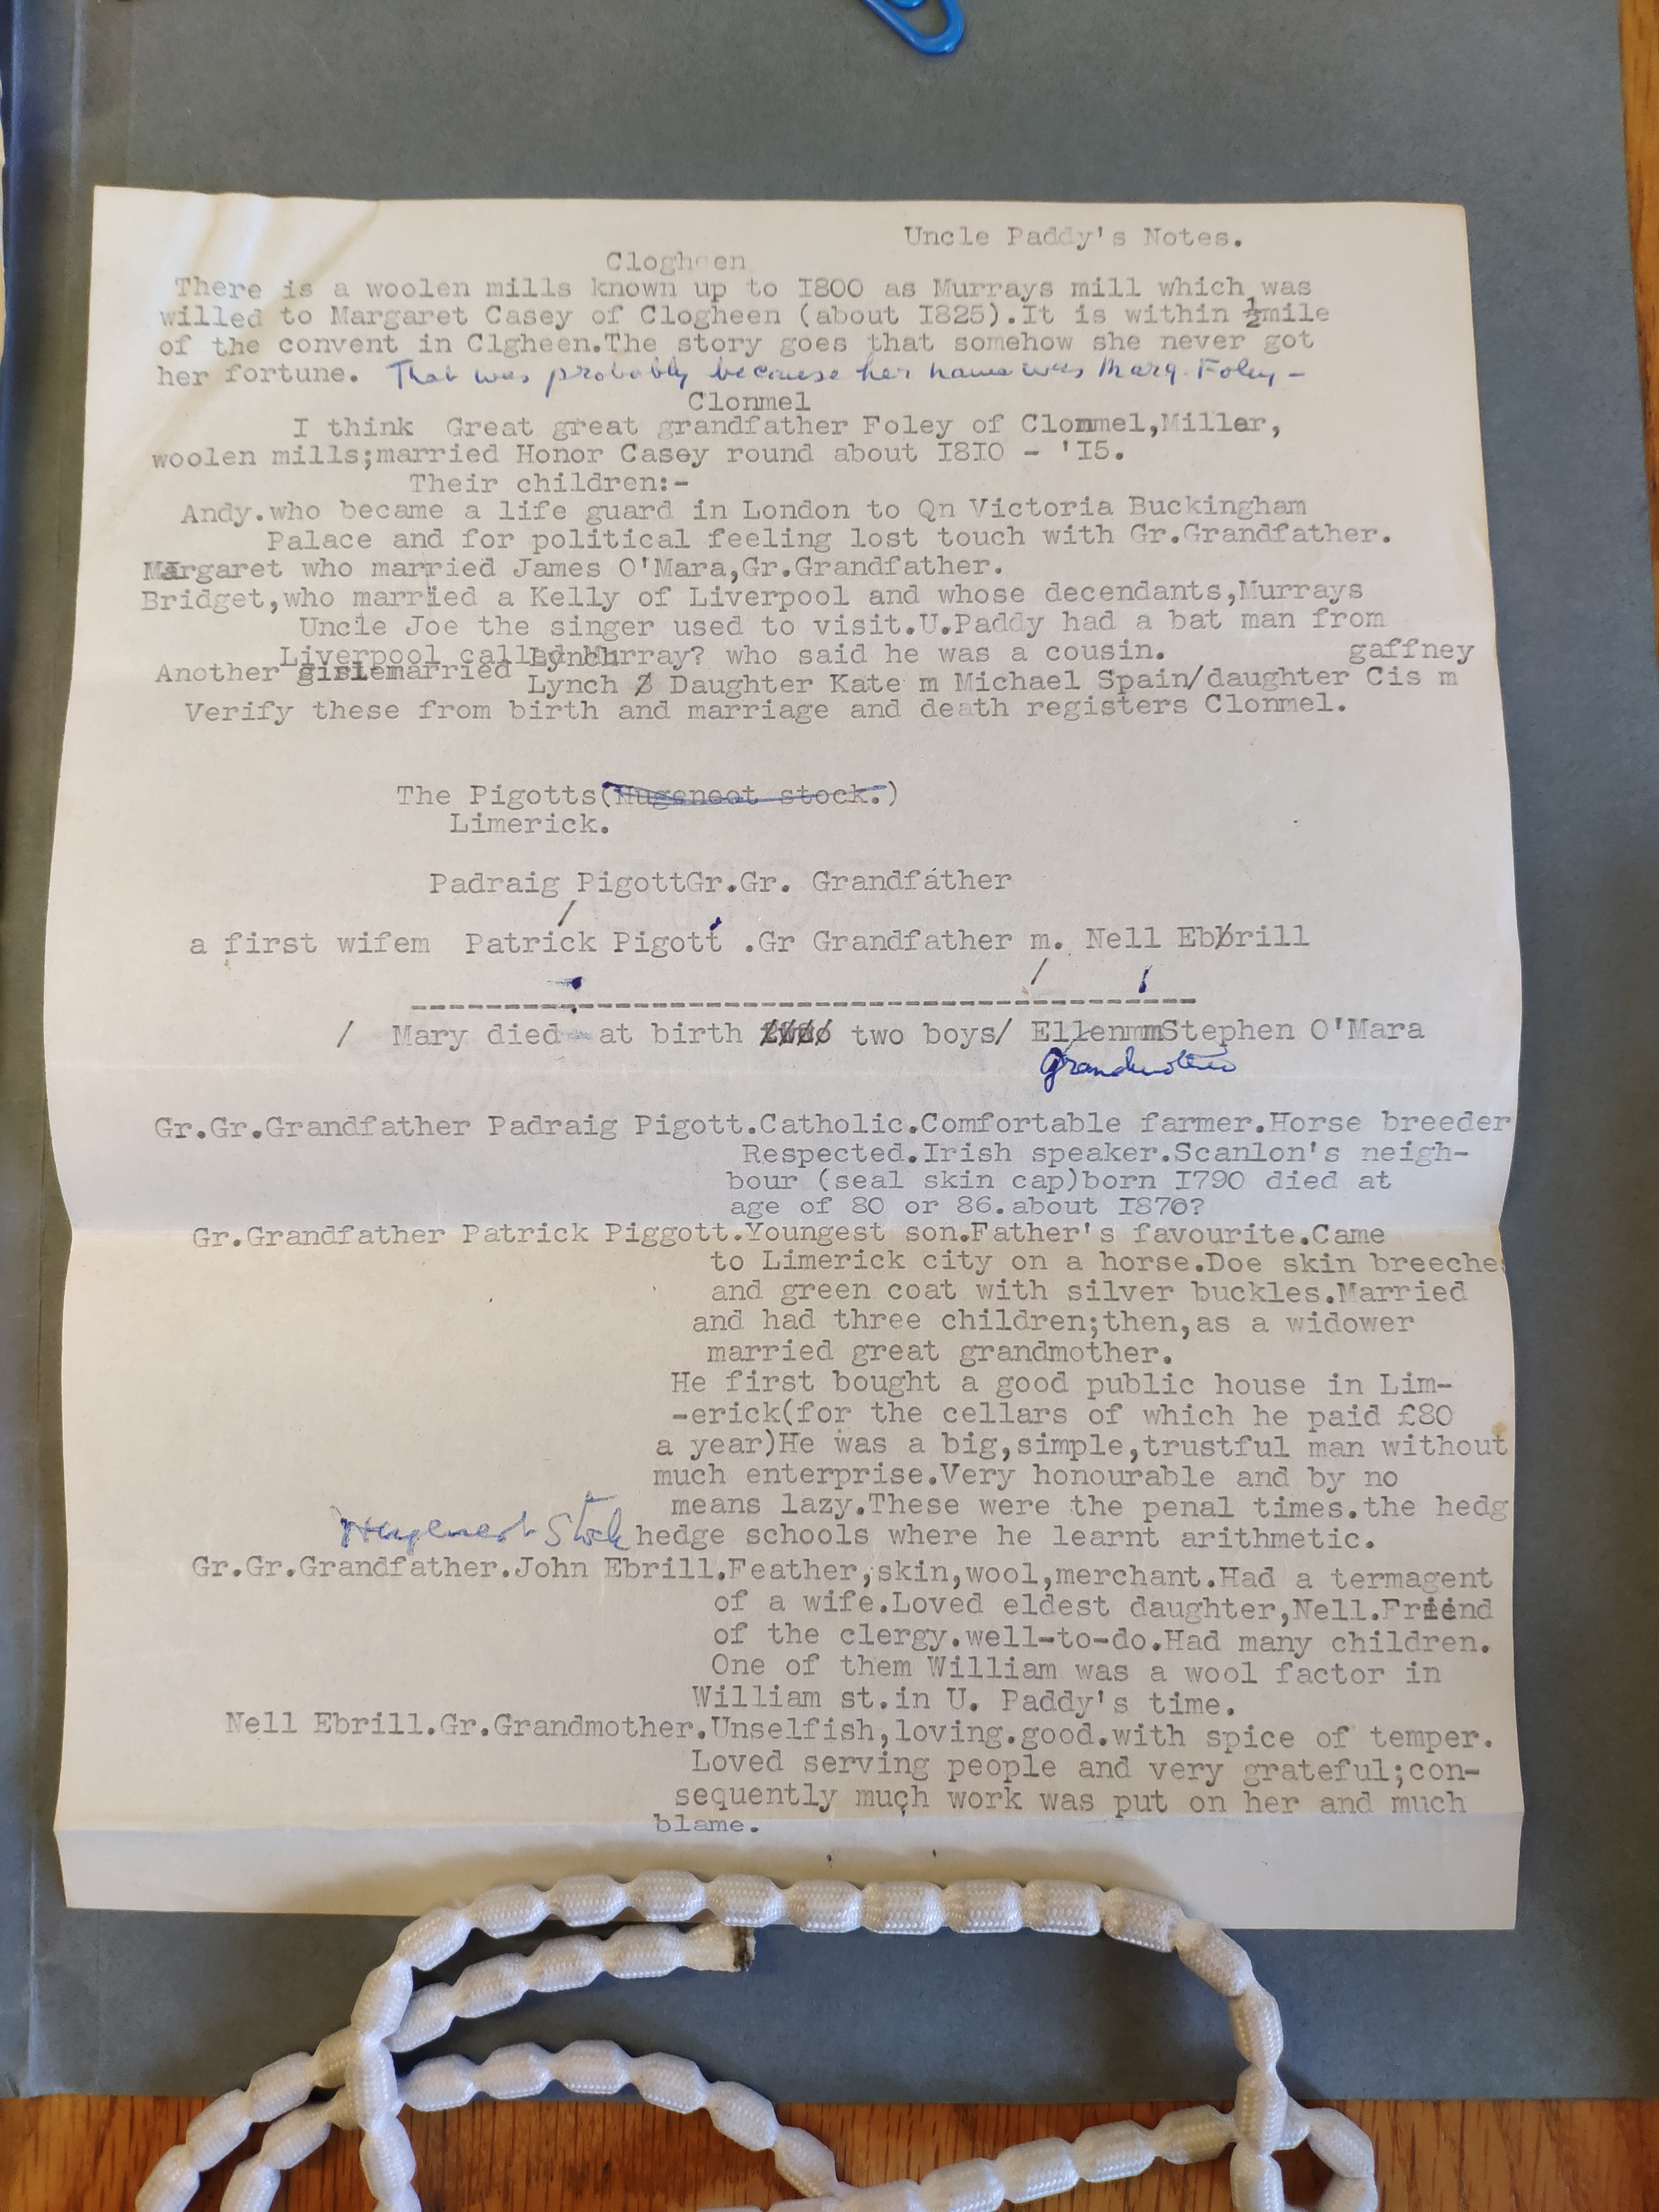 Uncle Paddy's Notes.
Clogheen
There is a woolen mills known up to I800 as Murrays mill which was
willed to Margaret Casey of Clogheen (about I825).It is within ½mile
of the convent in Clgheen.The story goes that somehow she never got
her fortune. That was probably because her name was Marg. Foley -
Clonmel
I think Great great grandfather Foley of Clonmel,Miller,
woolen mills;married Honor Casey round about I8I0 - 'I5.
Their children:-
Andy.who became a life guard in London to Qn Victoria Buckingham
Palace and for political feeling lost touch with Gr.Grandfather.
Margaret who married James O'Mara,Gr.Grandfather.
Bridget,who married a Kelly of Liverpool and whose decendants,Murrays
Uncle Joe the singer used to visit.U.Paddy had a bat man from
Liverpool called Murray? who said he was a cousin. gaffney
Another married Lynch Daughter Kate m Michael Spain/daughter Cis m
Verify these from birth and marriage and death registers Clonmel.
The Pigotts(Hugenoot stock.)
Limerick.
Padraig PigottGr.Gr. Grandfather
/
a first wifem Patrick Pigott .Gr Grandfather m. Nell Ebbrill
/ /
-----------------------------------------------
/ Mary died at birth two boys/ EllenmmStephen O'Mara
Grandmother
Gr.Gr.Grandfather Padraig Pigott.Catholic.Comfortable farmer.Horse breeder
Respected.Irish speaker.Scanlon's neigh-
bour (seal skin cap)born I790 died at
age of 80 or 86.about I870?
Gr.Grandfather Patrick Piggott.Youngest son.Father's favourite.Came
to Limerick city on a horse.Doe skin breeches
and green coat with silver buckles.Married
and had three children;then,as a widower
married great grandmother.
He first bought a good public house in Lim-
-erick(for the cellars of which he paid £80
a year)He was a big,simple,trustful man without
much enterprise.Very honourable and by no
means lazy.These were the penal times.the hedg
Hugenot Stock hedge schools where he learnt arithmetic.
Gr.Gr.Grandfather.John Ebrill.Feather,skin,wool,merchant.Had a termagent
of a wife.Loved eldest daughter,Nell.Friend
of the clergy.well-to-do.Had many children.
One of them William was a wool factor in
William st.in U. Paddy's time.
Nell Ebrill.Gr.Grandmother.Unselfish,loving.good.with spice of temper.
Loved serving people and very grateful;con-
sequently much work was put on her and much
blame.